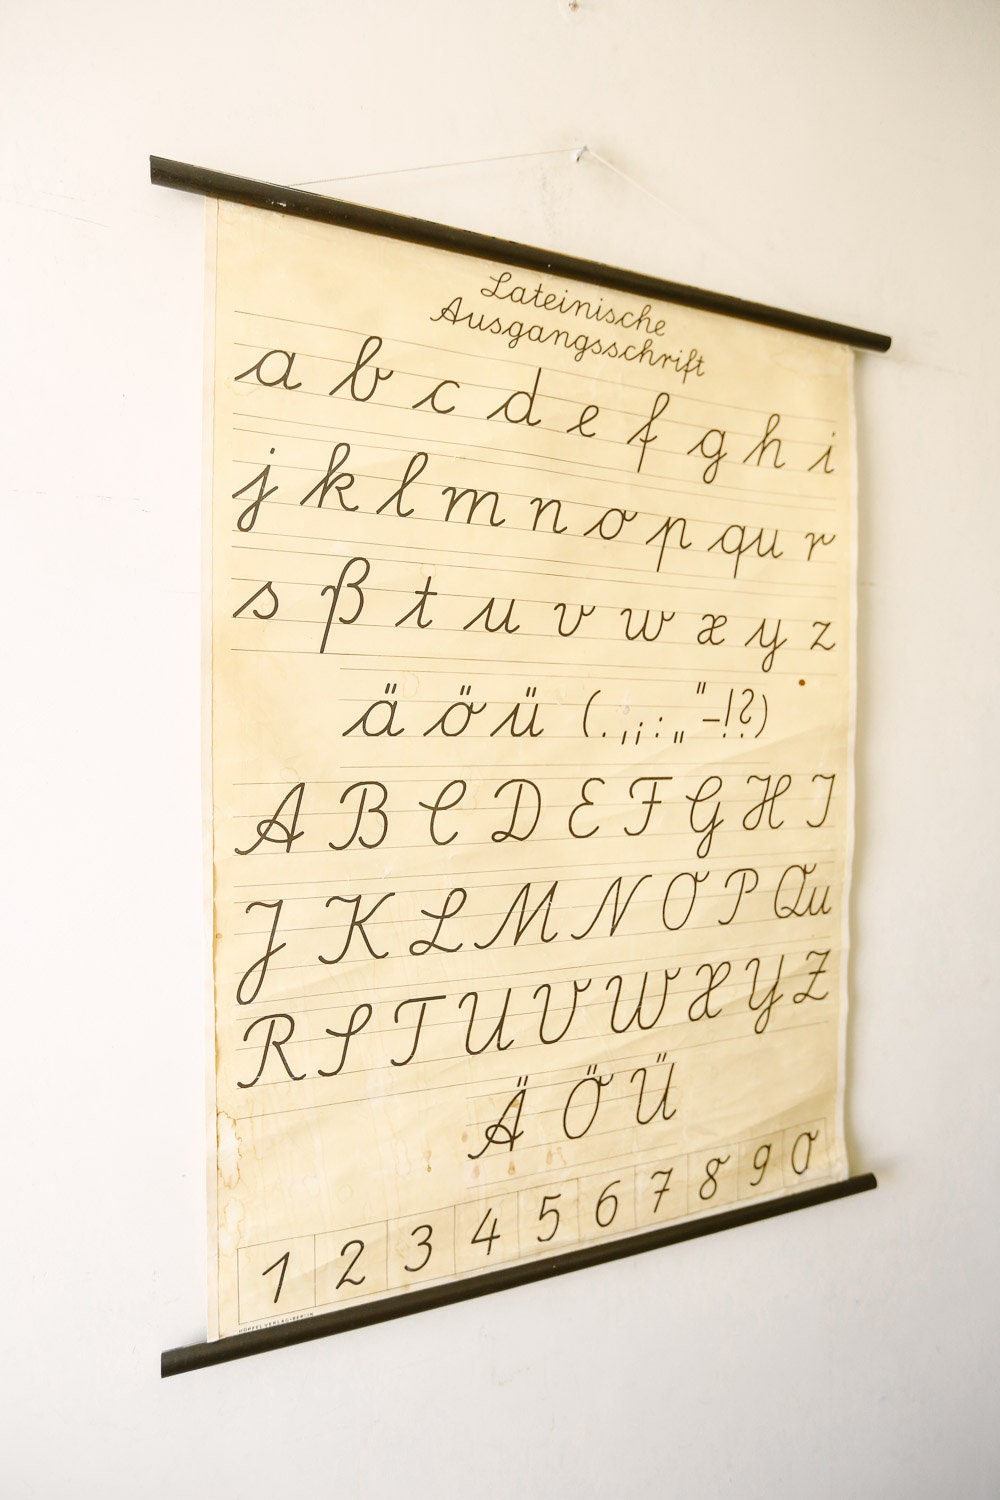 Lateinische
Ausgangsschrift
a b c d e f g h i
j k l m n o p qu r
s ß t u v w x y z
ä ö ü ( . , ; : „ " – ! ? )
A B C D E F G H I
J K L M N O P Qu
R S T U V W X Y Z
Ä Ö Ü
1 2 3 4 5 6 7 8 9 0